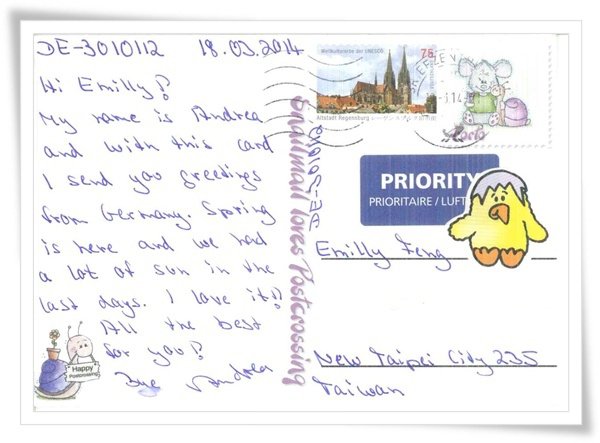 DE-3010112 18.03.2014
Hi Emilly!
My name is Andrea
and with this card
I send you greetings
from Germany. Spring
is here and we had
a lot of sun in the
last days. I love it!
All the best
for you!
Bye Andrea
Happy
Postcrossing
Snailmail loves Postcrossing
DE-3010112
Weltkulturerbe der UNESCO
75
Altstadt Regensburg
PRIORITY
PRIORITAIRE / LUFT
Emilly Feng
New Taipei City 235
Taiwan